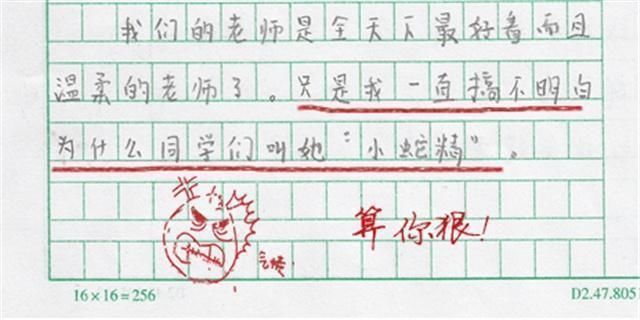 我们的老师是全天下最好看而且
温柔的老师了。只是我一直搞不明白
为什么同学们叫她“小蛇精”。
算你狠!
16×16=256
D2.47.8051